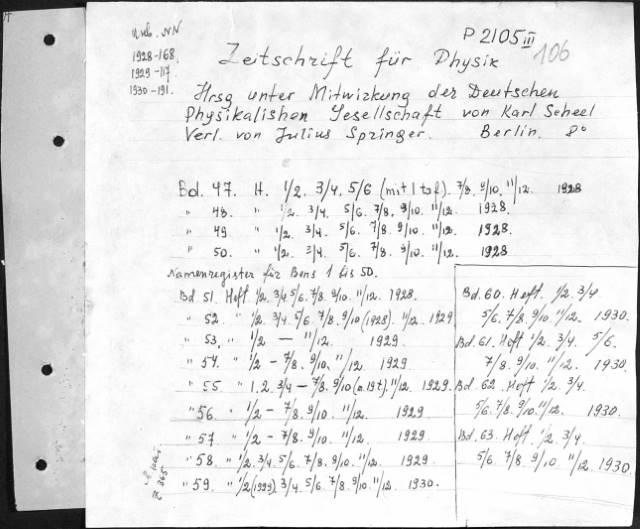 P 2105 III
106
1928-168.
1929-117.
1930-191.
Zeitschrift für Physik
Hrsg unter Mitwirkung der Deutschen
Physikalishen Gesellschaft von Karl Scheel
Verl. von Julius Springer. Berlin. 8°
Bd. 47. H. 1/2. 3/4. 5/6 (mit 1 taf.) 7/8. 9/10. 11/12. 1928
" 48. " 1/2. 3/4. 5/6. 7/8. 9/10. 11/12. 1928.
" 49 " 1/2. 3/4. 5/6. 7/8. 9/10. 11/12. 1928
" 50. " 1/2. 3/4. 5/6. 7/8. 9/10. 11/12. 1928
Namenregister für 1 bis 50.
Bd. 51. Heft 1/2. 3/4 5/6. 7/8. 9/10. 11/12. 1928.
" 52. " 1/2. 3/4 5/6. 7/8. 9/10 (1928). 11/12. 1929
" 53, " 1/2 — 11/12. 1929.
" 54. " 1/2 - 7/8. 9/10. 11/12. 1929
" 55 " 1.2. 3/4 — 7/8. 9/10 11/12. 1929.
" 56 " 1/2 - 7/8. 9/10. 11/12. 1929
" 57 " 1/2 - 7/8. 9/10. 11/12. 1929
" 58. " 1/2. 3/4. 5/6. 7/8. 9/10. 11/12. 1929.
" 59. " 1/2 3/4. 5/6. 7/8. 9/10. 11/12. 1930.
Bd. 60. Heft. 1/2. 3/4
5/6. 7/8. 9/10. 11/12. 1930.
Bd. 61. Heft 1/2. 3/4. 5/6.
7/8. 9/10. 11/12. 1930.
Bd. 62. Heft 1/2. 3/4.
5/6. 7/8. 9/10. 11/12. 1930.
Bd. 63. Heft. 1/2. 3/4.
5/6. 7/8. 9/10. 11/12. 1930